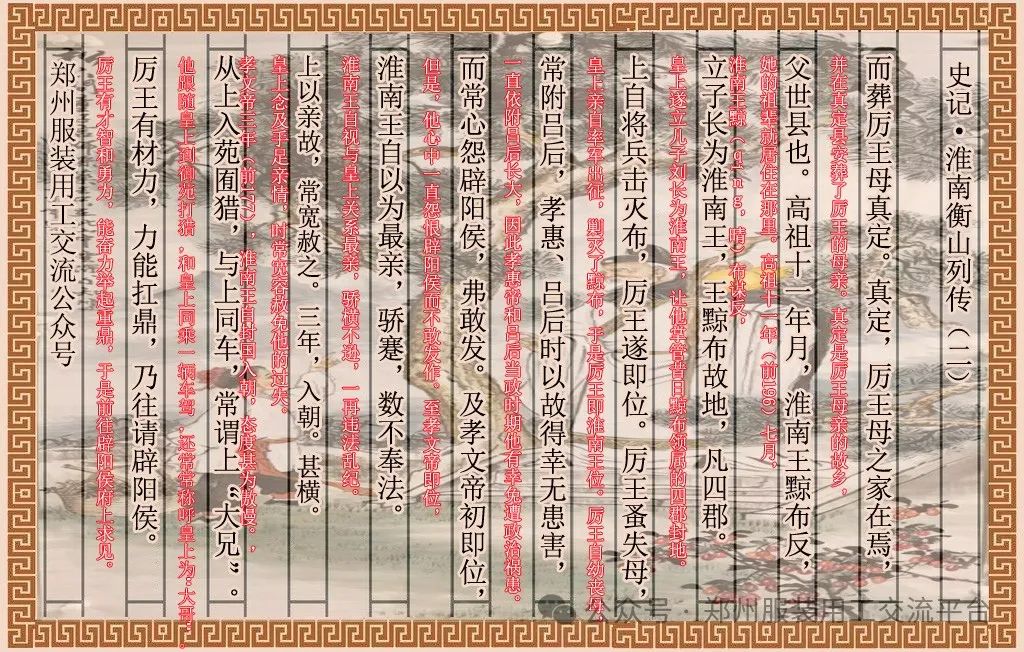 史记·淮南衡山列传（二）
而葬厉王母真定。真定，厉王母之家在焉，
并在真定县安葬了厉王的母亲。真定是厉王母亲的故乡，
父世县也。高祖十一年月，淮南王黥布反，
她的祖辈就居住在那里。高祖十一年（前196）七月，
淮南王黥（qíng，晴）布谋反，
立子长为淮南王，王黥布故地，凡四郡。
皇上遂立儿子刘长为淮南王，让他掌管昔日黥布领属的四郡封地。
上自将兵击灭布，厉王遂即位。厉王蚤失母，
皇上亲自率军出征，剿灭了黥布，于是厉王即淮南王位。厉王自幼丧母，
常附吕后，孝惠、吕后时以故得幸无患害，
一直依附吕后长大，因此孝惠帝和吕后当政时期他有幸免遭政治祸患。
而常心怨辟阳侯，弗敢发。及孝文帝初即位，
但是，他心中一直怨恨辟阳侯而不敢发作。至孝文帝即位，
淮南王自以为最亲，骄蹇，数不奉法。
淮南王自视与皇上关系最亲，骄横不逊，一再违法乱纪。
上以亲故，常宽赦之。三年，入朝。甚横。
皇上念及手足亲情，时常宽容赦免他的过失。
孝文帝三年（前177），淮南王自封国入朝，态度甚为傲慢。，
从上入苑囿猎，与上同车，常谓上“大兄”。
他跟随皇上到御苑打猎，和皇上同乘一辆车驾，还常常称呼皇上为“大哥”。
厉王有材力，力能扛鼎，乃往请辟阳侯。
厉王有才智和勇力，能奋力举起重鼎，于是前往辟阳侯府上求见。
郑州服装用工交流公众号
公众号·郑州服装用工交流平台